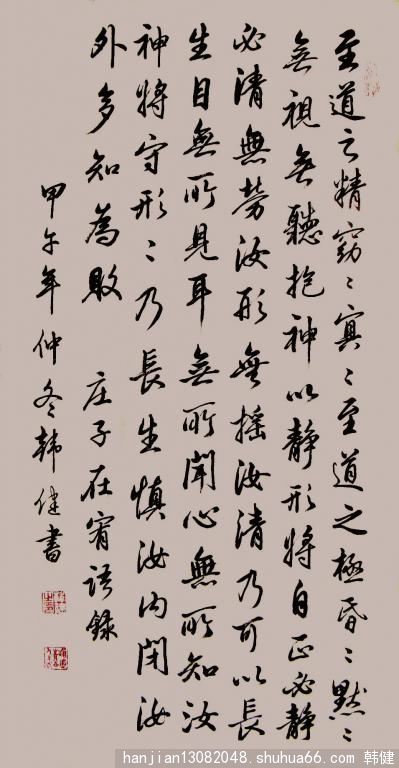 至道之精窈〻冥〻至道之極昏〻默〻
無視無聽抱神以靜形將自正必靜
必清無勞汝形無搖汝清乃可以長
生目無所見耳無所聞心無所知汝
神將守形〻乃長生慎汝內閉汝
外多知為敗 庄子在宥语錄
甲午年仲冬韩健書
hanjian13082048.shuhua66.com 韩健